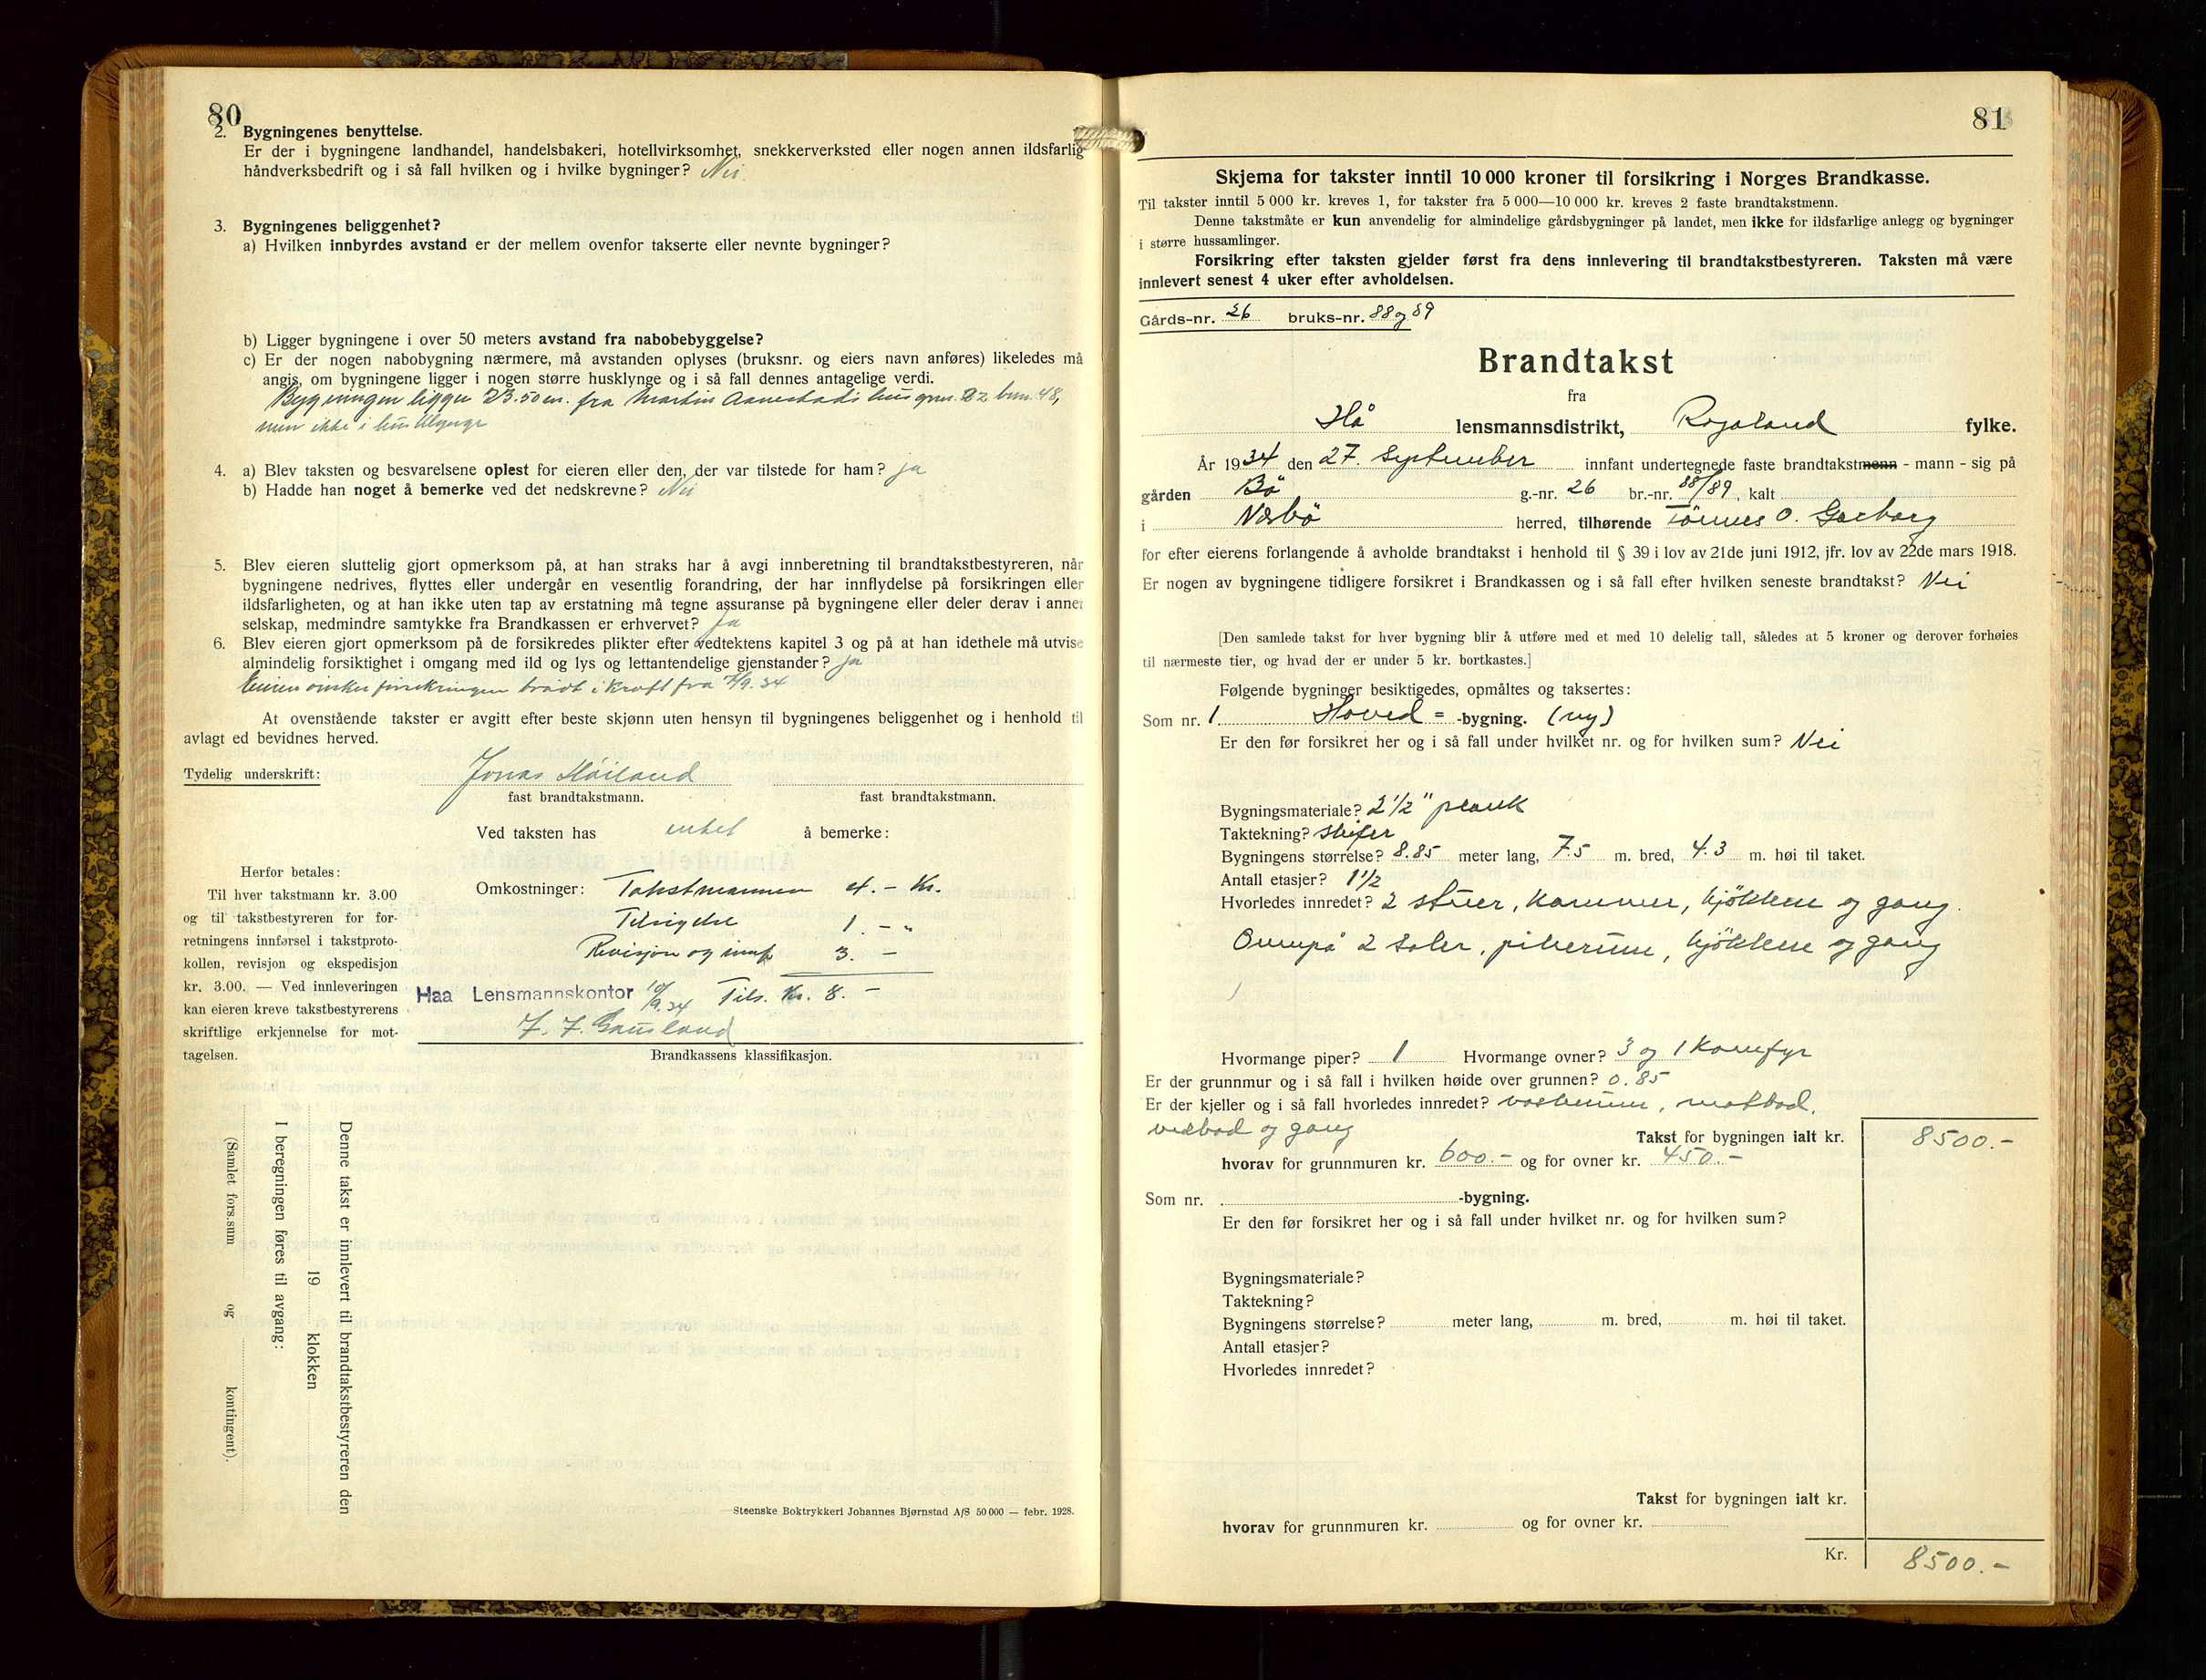 80
2. Bygningenes benyttelse.
Er der i bygningene landhandel, handelsbakeri, hotellvirksomhet, snekkerverksted eller nogen annen ildsfarlig
håndverksbedrift og i så fall hvilken og i hvilke bygninger? Nei.
3. Bygningenes beliggenhet?
a) Hvilken innbyrdes avstand er der mellem ovenfor takserte eller nevnte bygninger?
b) Ligger bygningene i over 50 meters avstand fra nabobebyggelse?
c) Er der nogen nabobygning nærmere, må avstanden oplyses (bruksnr. og eiers navn anføres) likeledes må
angis, om bygningene ligger i nogen større husklynge og i så fall dennes antagelige verdi.
Bygningen ligger 23.50 m. fra Martin Aanestads hus gnr. 22 bnr. 48,
men ikke i husklynge
4. a) Blev taksten og besvarelsene oplest for eieren eller den, der var tilstede for ham? ja
b) Hadde han noget å bemerke ved det nedskrevne? Nei
5. Blev eieren sluttelig gjort opmerksom på, at han straks har å avgi innberetning til brandtakstbestyreren, når
bygningene nedrives, flyttes eller undergår en vesentlig forandring, der har innflydelse på forsikringen eller
ildsfarligheten, og at han ikke uten tap av erstatning må tegne assuranse på bygningene eller deler derav i annet
selskap, medmindre samtykke fra Brandkassen er erhvervet? Ja
6. Blev eieren gjort opmerksom på de forsikredes plikter efter vedtektens kapitel 3 og på at han idethele må utvise
almindelig forsiktighet i omgang med ild og lys og lettantendelige gjenstander? ja
Eieren ønsker forsikringen trådt i kraft fra 7/9.34
At ovenstående takster er avgitt efter beste skjønn uten hensyn til bygningenes beliggenhet og i henhold til
avlagt ed bevidnes herved.
Tydelig underskrift: Jonas Höiland
fast brandtakstmann. fast brandtakstmann.
Ved taksten has intet å bemerke:
Herfor betales:
Til hver takstmann kr. 3.00
og til takstbestyreren for for-
retningens innførsel i takstproto-
kollen, revisjon og ekspedisjon
kr. 3.00. — Ved innleveringen
kan eieren kreve takstbestyrerens
skriftlige erkjennelse for mot-
tagelsen.
Omkostninger: Takstmannen 4. - Kr.
Tilsigelse 1. - "
Revisjon og innf. 3. -
Haa Lensmannskontor 10/9.34 Tils. Kr. 8. -
Brandkassens klassifikasjon.
Denne takst er innlevert til brandtakstbestyreren den
19 klokken
I beregningen føres til avgang:
(Samlet fors.sum og kontingent).
Steenske Boktrykkeri Johannes Bjørnstad A/S 50 000 — febr. 1928.
81
Skjema for takster inntil 10 000 kroner til forsikring i Norges Brandkasse.
Til takster inntil 5 000 kr. kreves 1, for takster fra 5 000—10 000 kr. kreves 2 faste brandtakstmenn.
Denne takstmåte er kun anvendelig for almindelige gårdsbygninger på landet, men ikke for ildsfarlige anlegg og bygninger
i større hussamlinger.
Forsikring efter taksten gjelder først fra dens innlevering til brandtakstbestyreren. Taksten må være
innlevert senest 4 uker efter avholdelsen.
Gårds-nr. 26 bruks-nr. 88 og 89
Brandtakst
fra
Hå lensmannsdistrikt, Rogaland fylke.
År 1934 den 27. September innfant undertegnede faste brandtakstmenn - mann - sig på
gården Bö g.-nr. 26 br.-nr. 88/89, kalt
i Nærbö herred, tilhørende Tönnes O. Garborg
for efter eierens forlangende å avholde brandtakst i henhold til § 39 i lov av 21de juni 1912, jfr. lov av 22de mars 1918.
Er nogen av bygningene tidligere forsikret i Brandkassen og i så fall efter hvilken seneste brandtakst? Nei
[Den samlede takst for hver bygning blir å utføre med et med 10 delelig tall, således at 5 kroner og derover forhøies
til nærmeste tier, og hvad der er under 5 kr. bortkastes.]
Følgende bygninger besiktigedes, opmåltes og taksertes:
Som nr. 1 Hoved = -bygning. (ny)
Er den før forsikret her og i så fall under hvilket nr. og for hvilken sum? Nei
Bygningsmateriale? 2 1/2" plank
Taktekning? skifer
Bygningens størrelse? 8.85 meter lang, 7.5 m. bred, 4.3 m. høi til taket.
Antall etasjer? 1 1/2
Hvorledes innredet? 2 stuer, kammer, kjökken og gang.
Ovenpå 2 saler, pikerum, kjökken og gang
Hvormange piper? 1 Hvormange ovner? 3 og 1 Komfyr
Er der grunnmur og i så fall i hvilken høide over grunnen? 0.85
Er der kjeller og i så fall hvorledes innredet? vaskerum, matbod,
vedbod og gang
Takst for bygningen ialt kr. 8500.-
hvorav for grunnmuren kr. 600.- og for ovner kr. 450.-
Som nr. -bygning.
Er den før forsikret her og i så fall under hvilket nr. og for hvilken sum?
Bygningsmateriale?
Taktekning?
Bygningens størrelse? meter lang, m. bred, m. høi til taket.
Antall etasjer?
Hvorledes innredet?
Takst for bygningen ialt kr.
hvorav for grunnmuren kr. og for ovner kr.
Kr. 8500.-